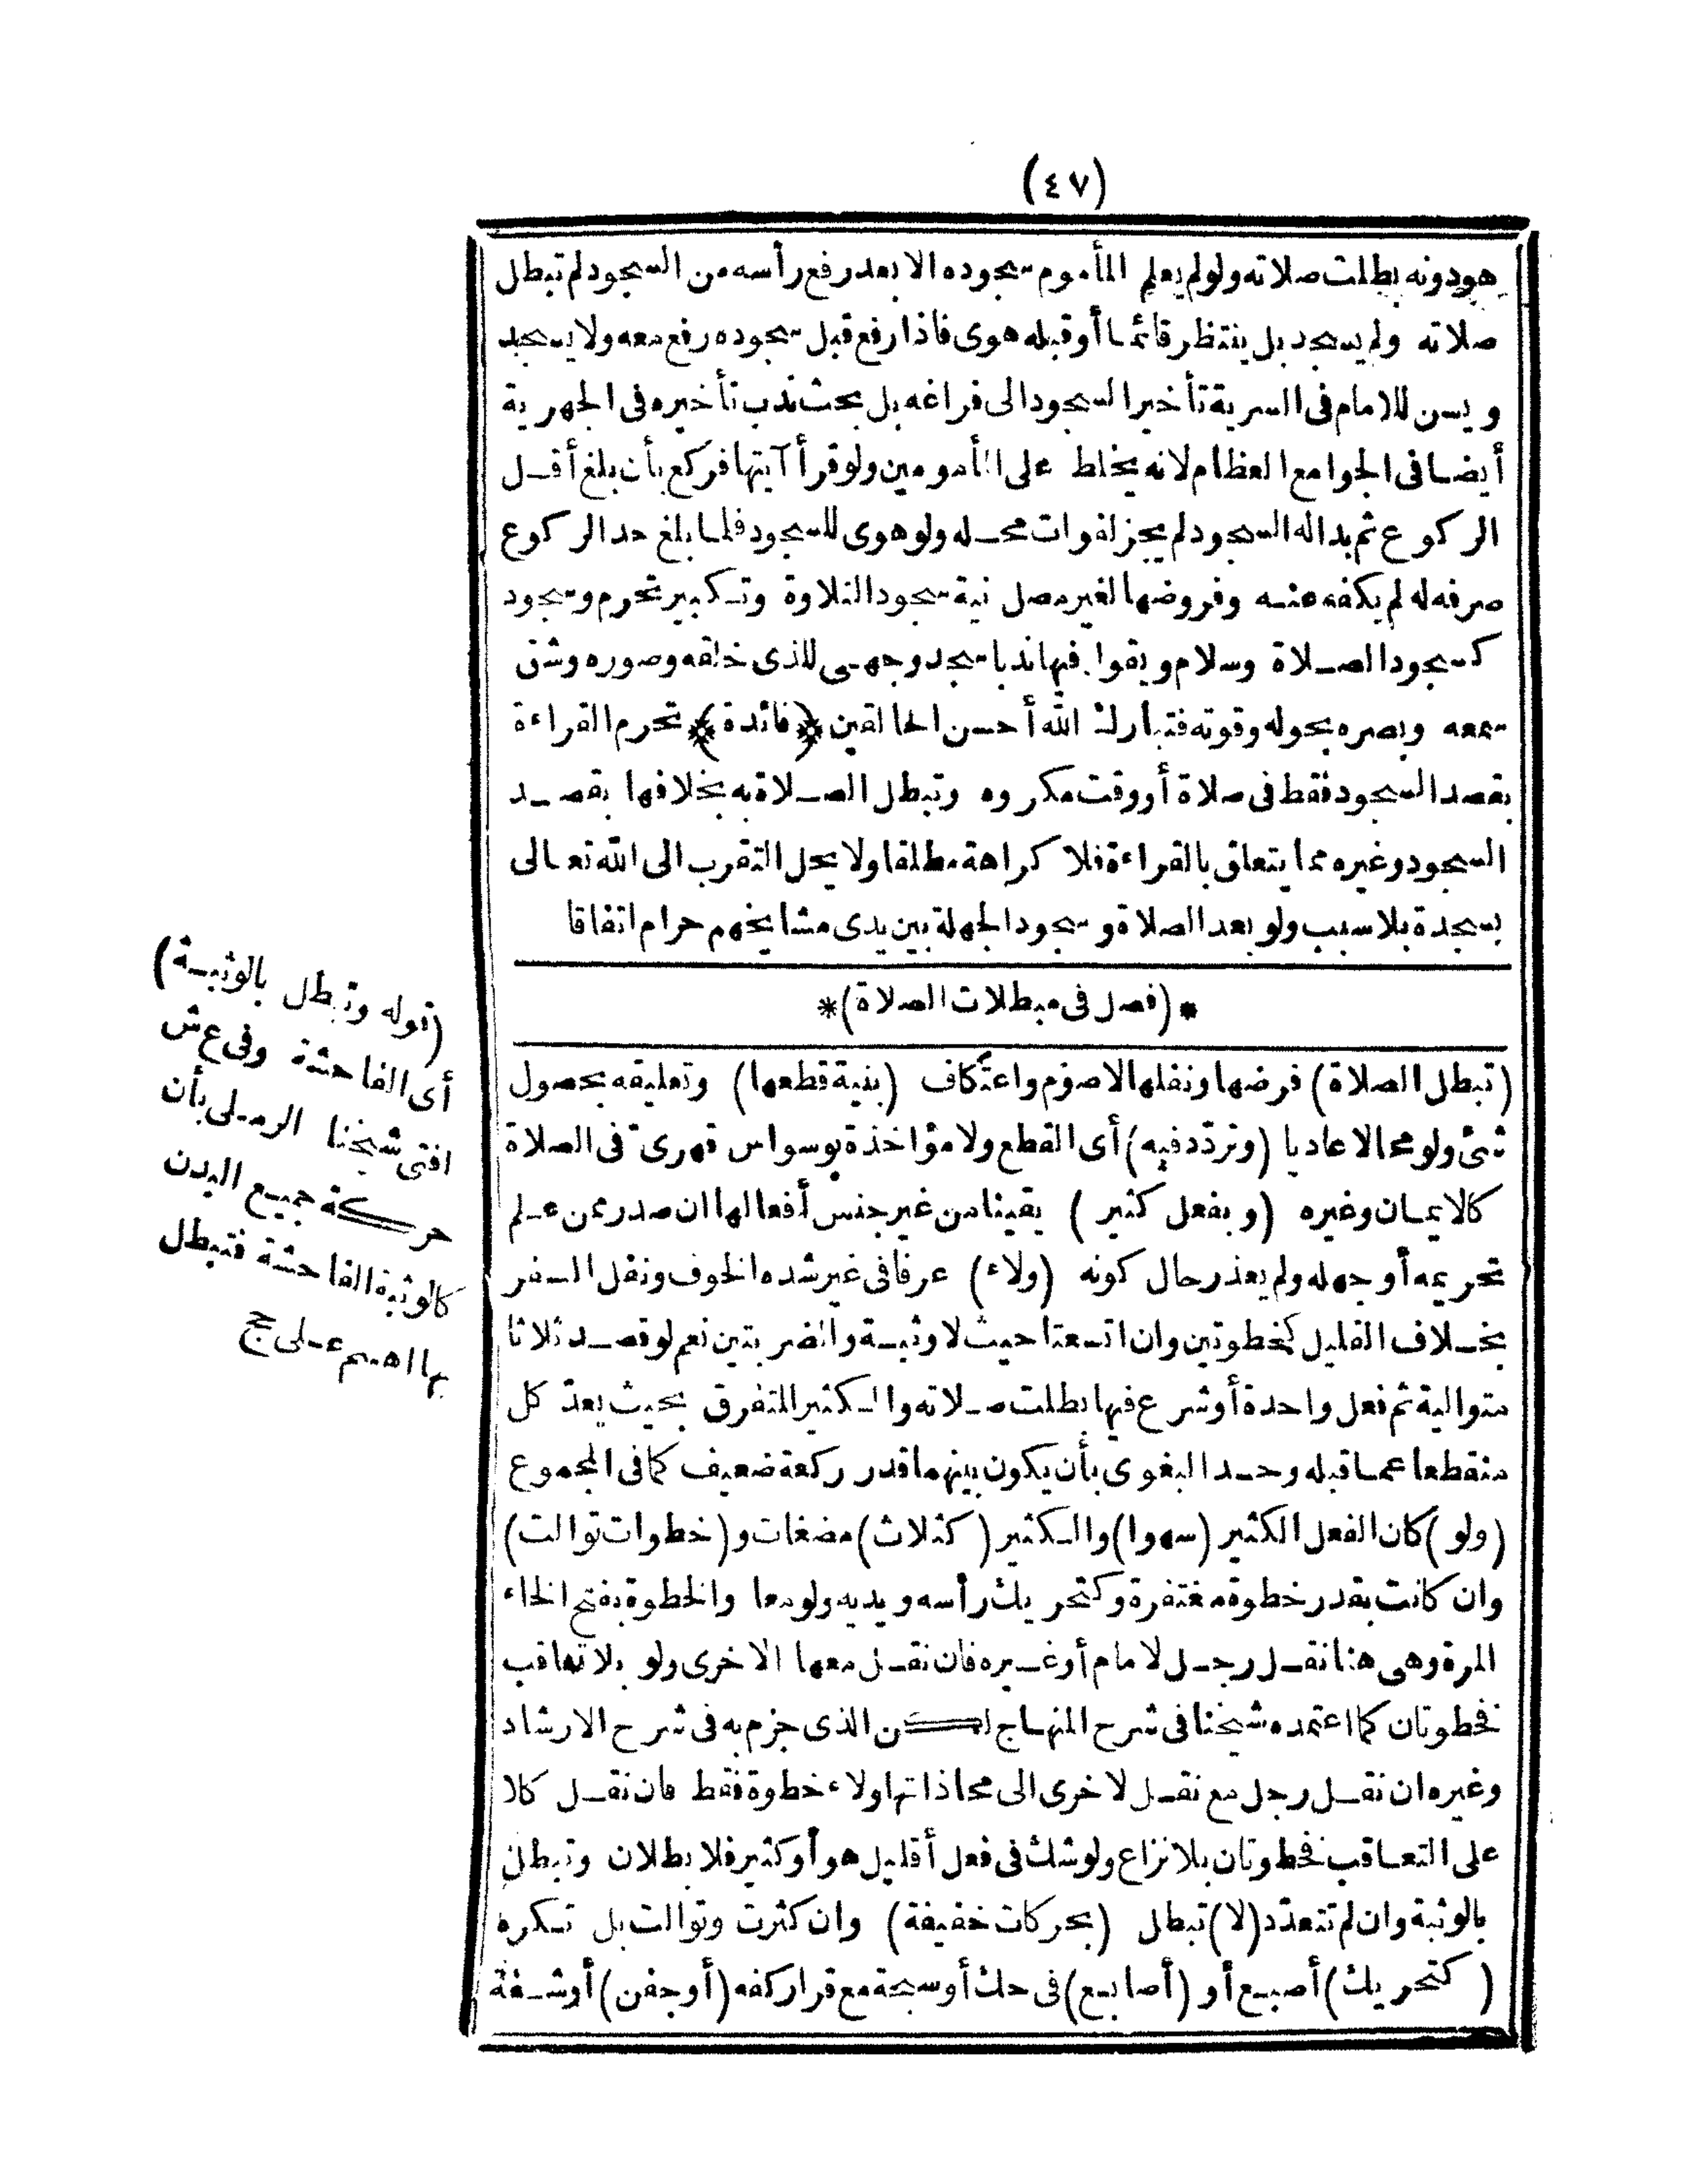 (٤٧)
هو دونه بطلت صلاته ولو لم يعلم المأموم سجوده الا بعد رفع رأسه من السجود لم تبطل
صلاته ولم يسجد بل ينتظر قائما أو قبله هوى فاذا رفع قبل سجوده رفع معه ولا يسجد
ويسن للامام فى السرية تأخير السجود الى فراغه بل بحث ندب تأخيره فى الجهرية
أيضا فى الجوامع العظام لانه يخلط على المأمومين ولو قرأ آيتها فركع بأن بلغ أقل
الركوع ثم بدا له السجود لم يجز لفوات محله ولو هوى للسجود فلما بلغ حد الركوع
صرفه له لم يكفه عنه وفروضها لغير مصل نية سجود التلاوة وتكبير تحرم وسجود
كسجود الصلاة وسلام ويقول فيها ندبا سجد وجهى للذى خلقه وصوره وشق
سمعه وبصره بحوله وقوته فتبارك الله أحسن الخالقين ﴿فائدة﴾ تحرم القراءة
بقصد السجود فقط فى صلاة أو وقت مكروه وتبطل الصلاة به بخلافها بقصد
السجود وغيره مما يتعلق بالقراءة فلا كراهة مطلقا ولا يحل التقرب الى الله تعالى
بسجدة بلا سبب ولو بعد الصلاة وسجود الجهلة بين يدى مشايخهم حرام اتفاقا
*(فصل فى مبطلات الصلاة)*
(تبطل الصلاة) فرضها ونفلها لا صوم واعتكاف (بنية قطعها) وتعليقه بحصول
شئ ولو محالا عاديا (وتردّد فيه) أى القطع ولا مؤاخذة بوسواس قهرىّ فى الصلاة
كالايمان وغيره (وبفعل كثير) يقينا من غير جنس أفعالها ان صدر ممن علم
تحريمه أو جهله ولم يعذر حال كونه (ولاء) عرفا فى غير شده الخوف ونفل السفر
بخلاف القليل كخطوتين وان اتسعتا حيث لا وثبة والضربتين نعم لو قصد ثلاثا
متوالية ثم فعل واحدة أو شرع فيها بطلت صلاته والكثير المتفرق بحيث يعدّ كل
منقطعا عما قبله وحد البغوى بأن يكون بينهما قدر ركعة ضعيف كما فى المجموع
(ولو) كان الفعل الكثير (سهوا) والكثير (كثلاث) مضغات و(خطوات توالت)
وان كانت بقدر خطوة مغتفرة وكتحريك رأسه ويديه ولو معا والخطوة بفتح الخاء
المرة وهى هنا نقل رجل لامام أو غيره فان نقل معها الاخرى ولو بلا تعاقب
فخطوتان كما اعتمده شيخنا فى شرح المنهاج لكن الذى جزم به فى شرح الارشاد
وغيره ان نقل رجل مع نقل لاخرى الى محاذاتها ولاء خطوة فقط فان نقل كلا
على التعاقب فخطوتان بلا نزاع ولو شك فى فعل أقليل هو أو كثير فلا بطلان وتبطل
بالوثبة وان لم تتعدّد (لا) تبطل (بحركات خفيفة) وان كثرت وتوالت بل تكره
(كتحريك) أصبع أو (أصابع) فى حك أو سبحة مع قرار كفه (أو جفن) أو شفة
(قوله وتبطل بالوثبة)
أى الفاحشة وفى ع ش
افتى شيخنا الرملى بأن
حركة جميع البدن
كالوثبة الفاحشة فتبطل
بها اه سم على حج